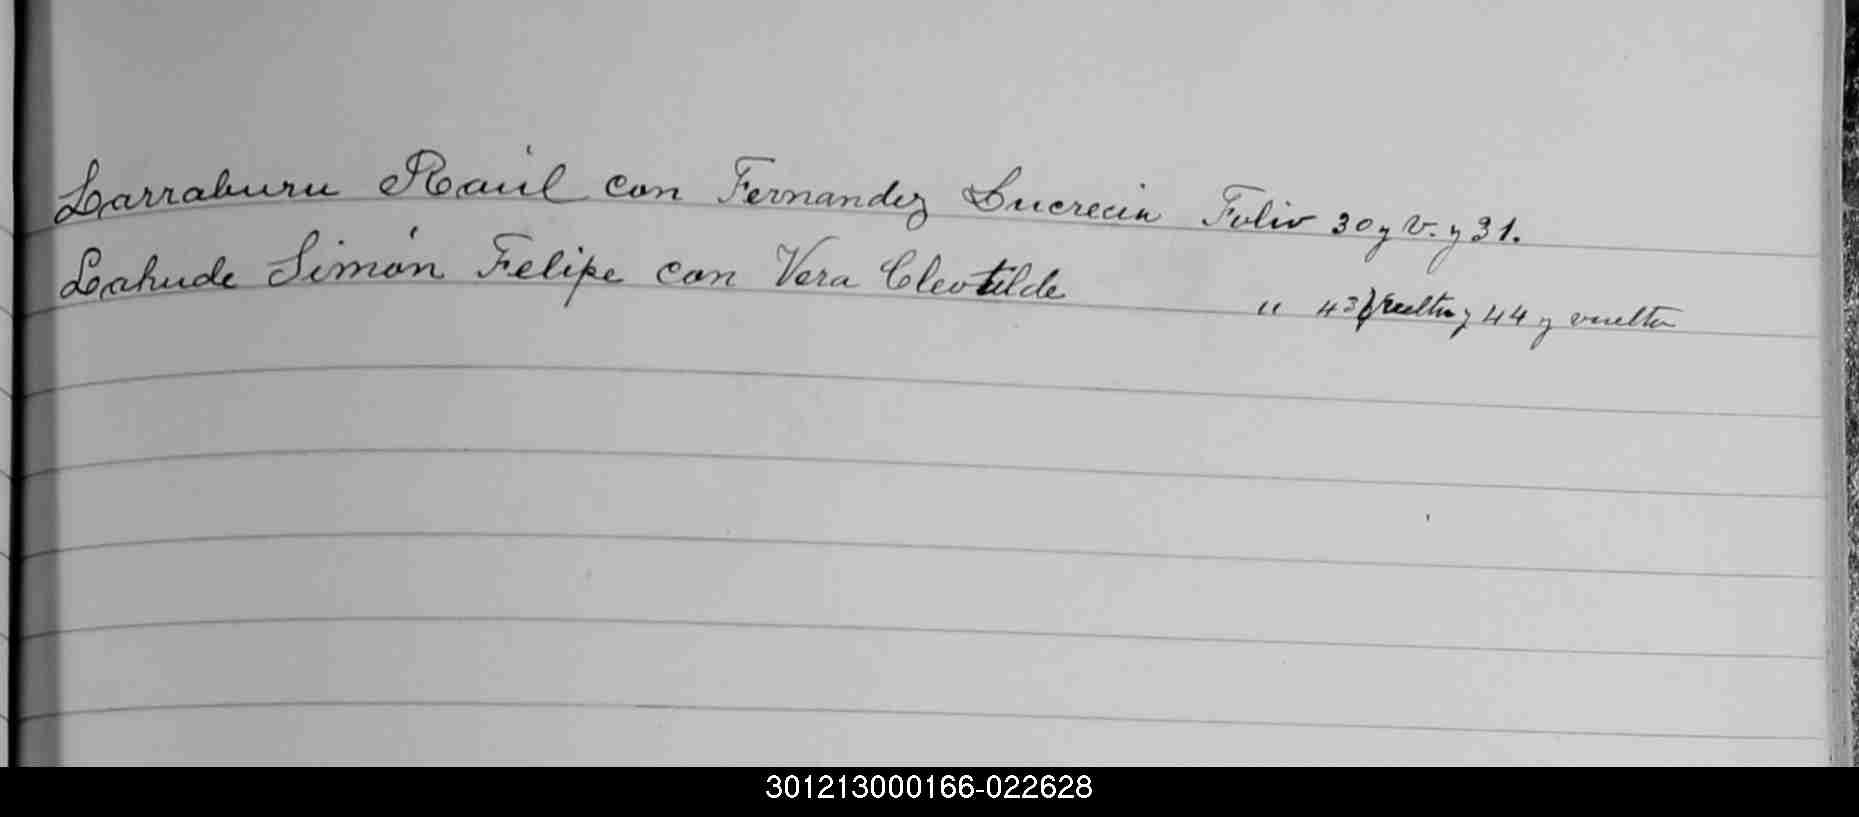 Larraburu Raúl con Fernandez Lucrecia Folio 30 y v. y 31.
Lahude Simón Felipe con Vera Cleotilde " 43 vuelta y 44 y vuelta
301213000166-022628